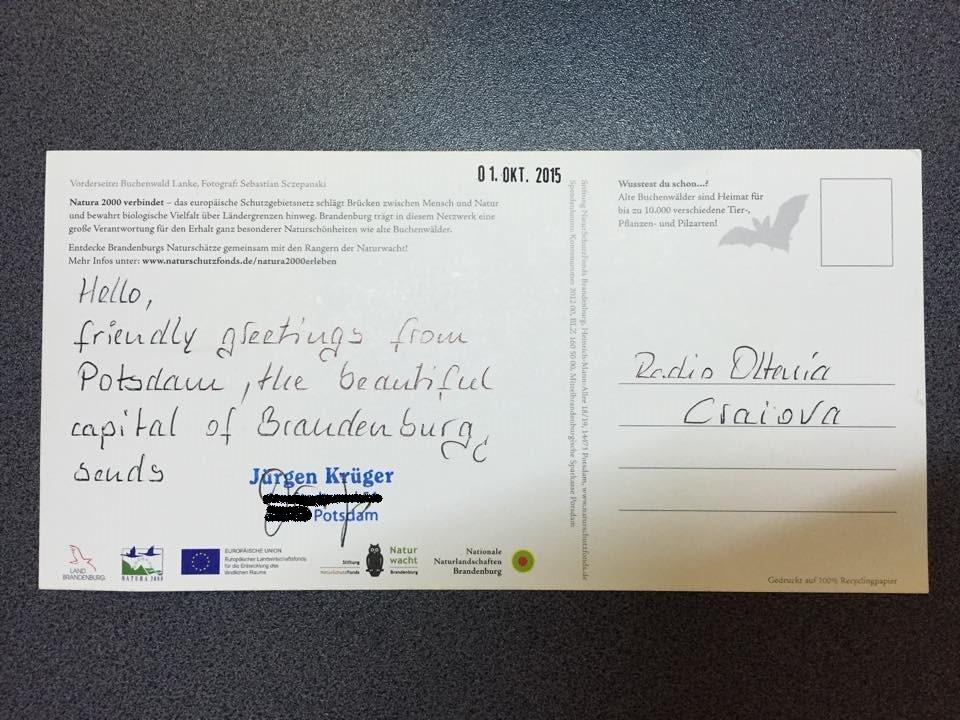 Vorderseite: Buchenwald Lanke, Fotograf: Sebastian Sczepanski
01. OKT. 2015
Natura 2000 verbindet – das europäische Schutzgebietsnetz schlägt Brücken zwischen Mensch und Natur
und bewahrt biologische Vielfalt über Ländergrenzen hinweg. Brandenburg trägt in diesem Netzwerk eine
große Verantwortung für den Erhalt ganz besonderer Naturschönheiten wie alte Buchenwälder.
Entdecke Brandenburgs Naturschätze gemeinsam mit den Rangern der Naturwacht!
Mehr Infos unter: www.naturschutzfonds.de/natura2000erleben
Hello,
friendly greetings from
Potsdam, the beautiful
capital of Brandenburg,
sends
Jürgen Krüger
Potsdam
LAND
BRANDENBURG
NATURA 2000
EUROPÄISCHE UNION
Europäischer Landwirtschaftsfonds
für die Entwicklung des
ländlichen Raums
Stiftung
NaturSchutzFonds
Natur
wacht
Brandenburg
Nationale
Naturlandschaften
Brandenburg
Stiftung NaturSchutzFonds Brandenburg, Heinrich-Mann-Allee 18/19, 14473 Potsdam, www.naturschutzfonds.de
Spendenkonto: Kontonummer 2012 00, BLZ 160 500 00, Mittelbrandenburgische Sparkasse Potsdam
Wusstest du schon...?
Alte Buchenwälder sind Heimat für
bis zu 10.000 verschiedene Tier-,
Pflanzen- und Pilzarten!
Radio Oltenia
Craiova
Gedruckt auf 100% Recyclingpapier